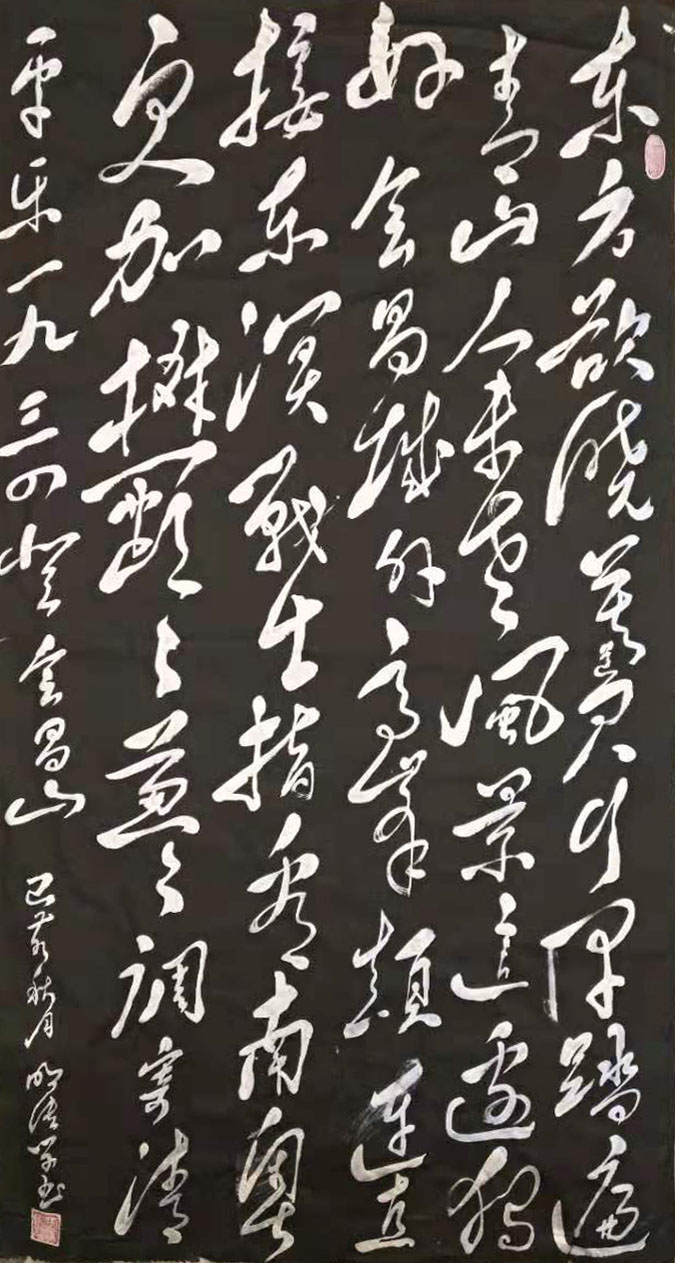 东方欲晓莫道君行早踏遍
青山人未老风景这边独
好会昌城外高峰颠连直
接东溟战士指看南粤
更加郁々葱々调寄清
平乐一九三四登会昌山
己亥秋月